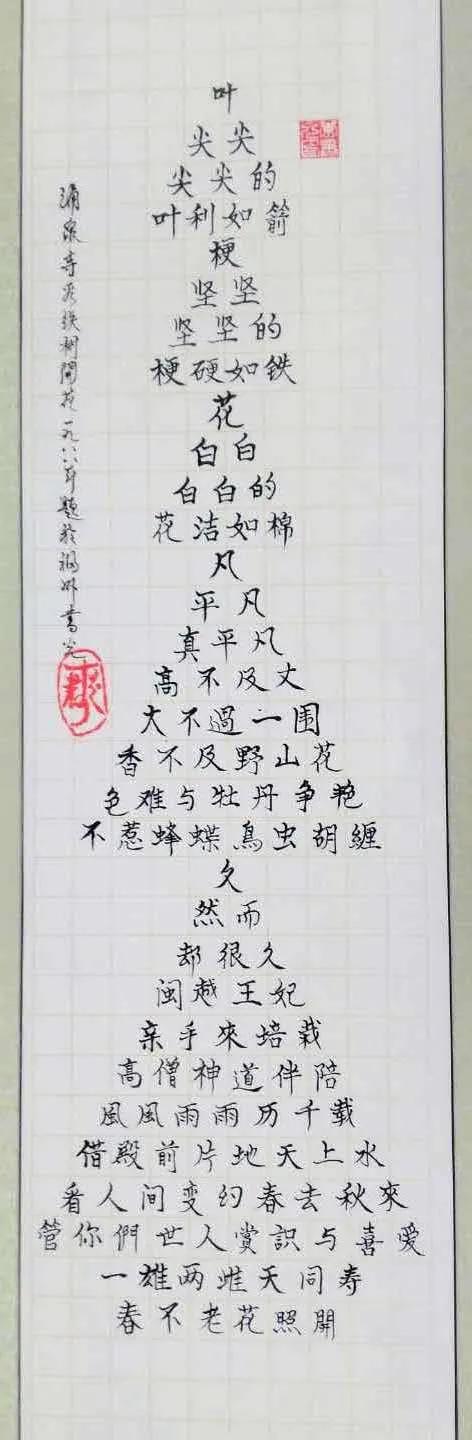 叶
尖尖
尖尖的
叶利如箭
梗
坚坚
坚坚的
梗硬如鉄
花
白白
白白的
花洁如棉
凡
平凡
真平凡
高不及丈
大不過一围
香不及野山花
色难与牡丹争艳
不惹蜂蝶鳥虫胡纏
久
然而
却很久
闽越王妃
亲手來培栽
高僧神道伴陪
風風雨雨历千载
借殿前片地天上水
看人间变幻春去秋來
管你們世人賞識与喜爱
一雄两雌天同寿
春不老花照開
涌泉寺 鉄树開花一九八八年題於福州